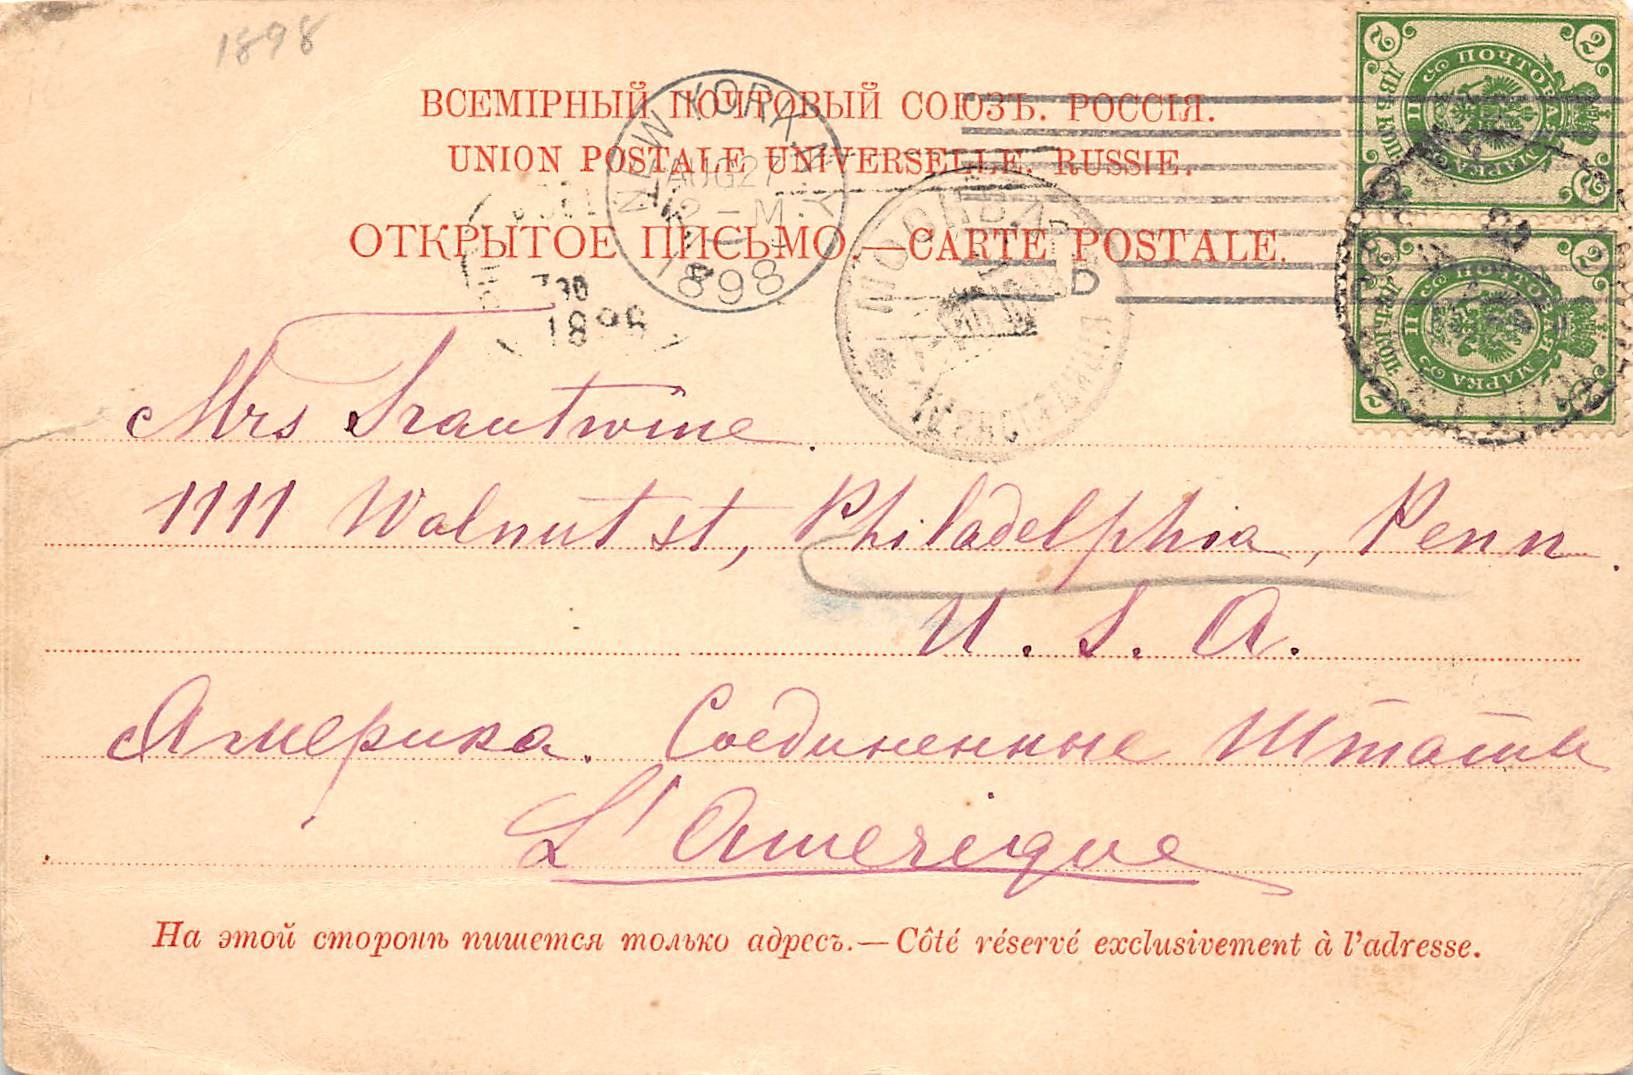 1898
ВСЕМІРНЫЙ ПОЧТОВЫЙ СОЮЗЪ. РОССІЯ.
UNION POSTALE UNIVERSELLE. RUSSIE.
ОТКРЫТОЕ ПИСЬМО.—CARTE POSTALE.
NEW YORK, N.Y.
AUG 27
1898
D
1898
2 2
ПОЧТОВАЯ МАРКА
ДВѢ КОП.
2 2
2 2
ПОЧТОВАЯ МАРКА
2 2
Mrs Trautwine.
1111 Walnut st, Philadelphia, Penn.
U. S. A.
Америка. Соединенные Штаты
L'Amerique
На этой сторонѣ пишется только адресъ.—Côté réservé exclusivement à l'adresse.